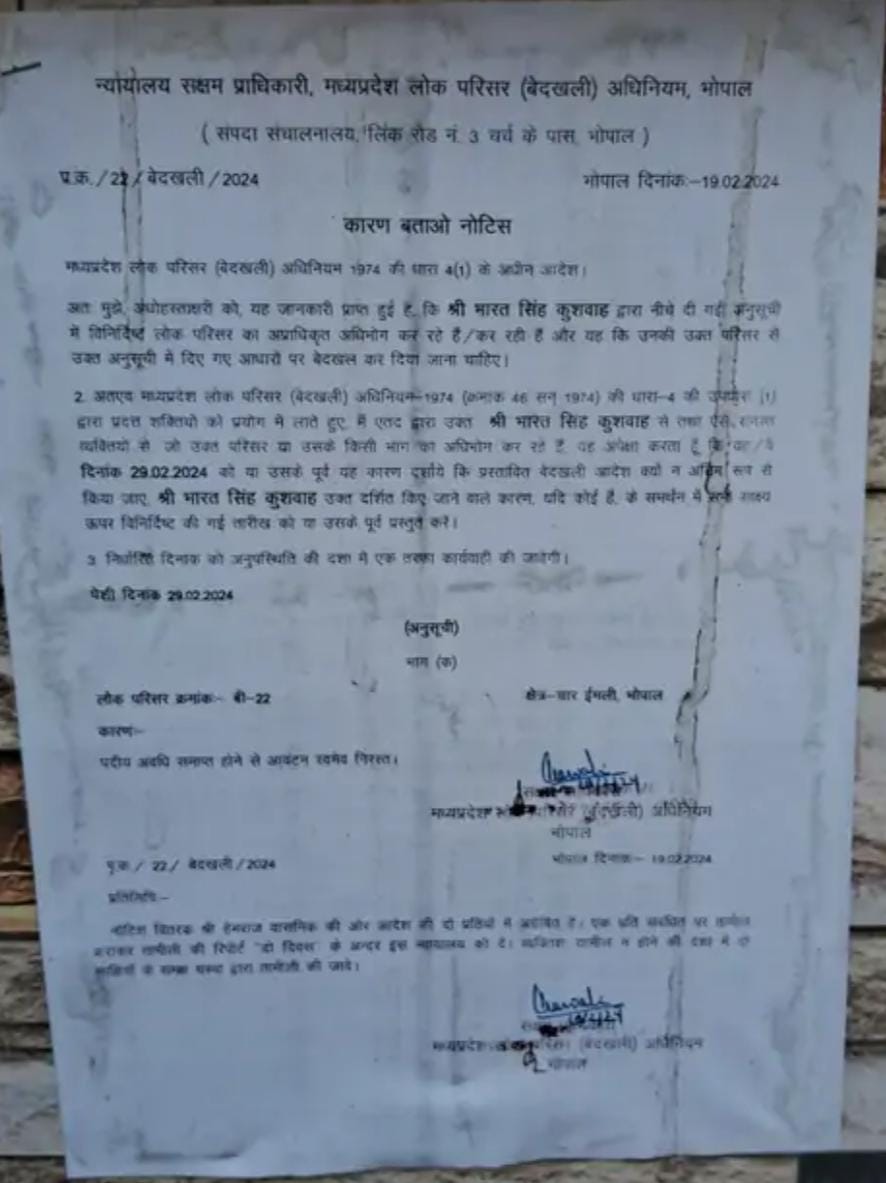 न्यायालय सक्षम प्राधिकारी, मध्यप्रदेश लोक परिसर (बेदखली) अधिनियम, भोपाल
( संपदा संचालनालय, लिंक रोड नं. 3 चर्च के पास, भोपाल )
प्र.क्र. / 22 / बेदखली / 2024 भोपाल दिनांक:-19.02.2024
कारण बताओ नोटिस
मध्यप्रदेश लोक परिसर (बेदखली) अधिनियम 1974 की धारा 4(1) के अधीन आदेश।
अतः मुझे, अधोहस्ताक्षरी को, यह जानकारी प्राप्त हुई है, कि श्री भारत सिंह कुशवाह द्वारा नीचे दी गई अनुसूची
में विनिर्दिष्ट लोक परिसर का अप्राधिकृत अधिभोग कर रहे हैं/कर रही हैं और यह कि उनकी उक्त परिसर से
उक्त अनुसूची में दिए गए आधारों पर बेदखल कर दिया जाना चाहिए।
2. अतएव मध्यप्रदेश लोक परिसर (बेदखली) अधिनियम-1974 (कमांक 46 सन् 1974) की धारा-4 की उपधारा (1)
द्वारा प्रदत्त शक्तियों को प्रयोग में लाते हुए, मैं एतद द्वारा उक्त श्री भारत सिंह कुशवाह से तथा ऐसे समस्त
व्यक्तियों से जो उक्त परिसर या उसके किसी भाग का अधिभोग कर रहे हैं, यह अपेक्षा करता हूँ कि वह/वे
दिनांक 29.02.2024 को या उसके पूर्व यह कारण दर्शाये कि प्रस्तावित बेदखली आदेश क्यों न अंतिम रूप से
किया जाए, श्री भारत सिंह कुशवाह उक्त दर्शित किए जाने वाले कारण, यदि कोई है, के समर्थन में सभी साक्ष्य
ऊपर विनिर्दिष्ट की गई तारीख को या उसके पूर्व प्रस्तुत करें।
3 निर्धारित दिनांक को अनुपस्थिति की दशा में एक तरफा कार्यवाही की जावेगी।
पेशी दिनांक 29.02.2024
(अनुसूची)
भाग (क)
लोक परिसर क्रमांक:- बी-22 क्षेत्र-चार ईमली, भोपाल
कारण:-
पदीय अवधि समाप्त होने से आवंटन स्वमेव निरस्त।
मध्यप्रदेश लोक परिसर (बेदखली) अधिनियम
भोपाल
पृ.क्र. / 22 / बेदखली / 2024 भोपाल दिनांक:- 19.02.2024
प्रतिलिपि:-
नोटिस वितरक श्री हेमराज वासनिक की ओर आदेश की दो प्रतियों में अग्रेषित है। एक प्रति संबंधित पर तामील
कराकर तामीली की रिपोर्ट "दो दिवस" के अन्दर इस न्यायालय को दें। व्यक्तिशः तामील न होने की दशा में दो
साक्षियों के समक्ष चस्पा द्वारा तामीली की जावे।
मध्यप्रदेश लोक परिसर (बेदखली) अधिनियम
भोपाल